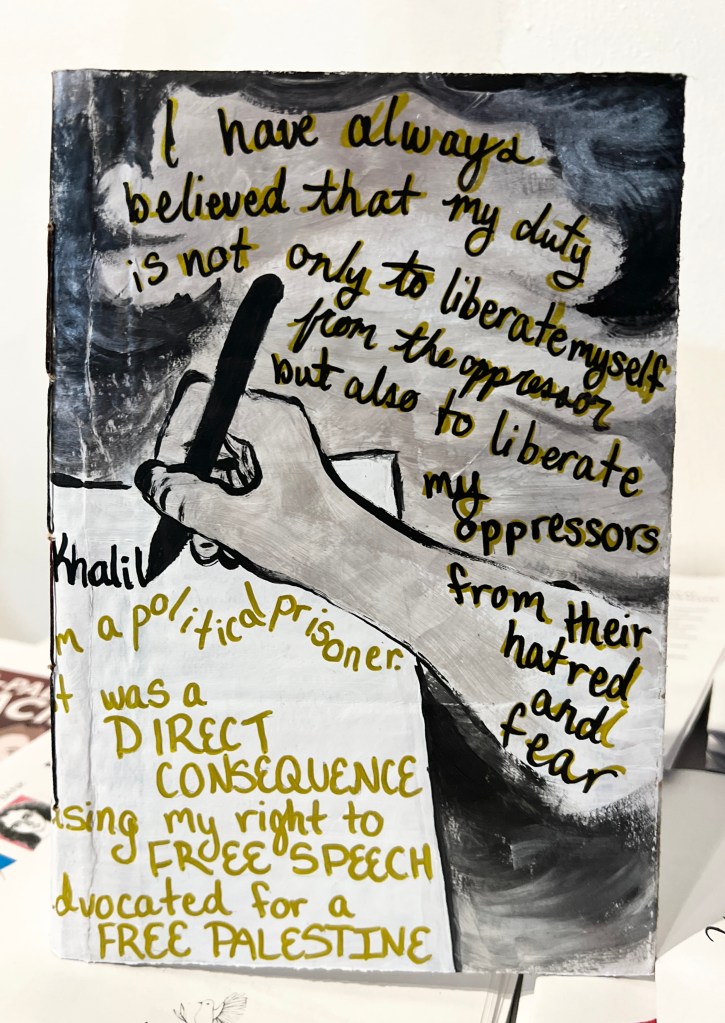 I have always
believed that my duty
is not only to liberate myself
from the oppressor
but also to liberate
my
oppressors
from their
hatred
and
fear
Khalil
m a political prisoner.
t was a
DIRECT
CONSEQUENCE
ising my right to
FREE SPEECH
dvocated for a
FREE PALESTINE